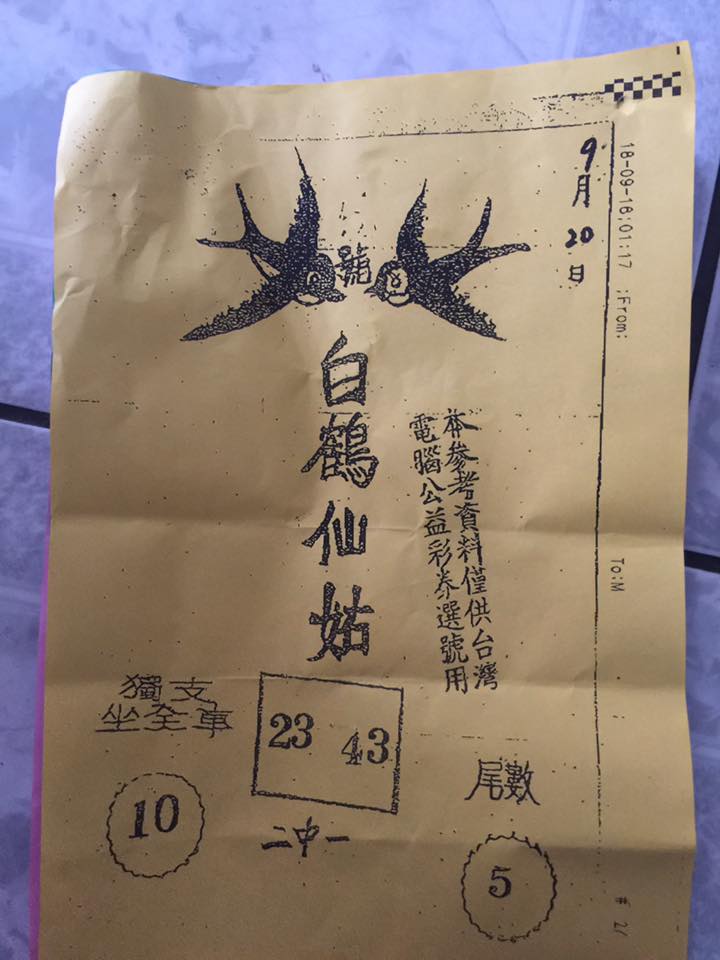 18-09-18;01:17 ;From:
To:M
# 2/
9月20日
號
白鶴仙姑
本參考資料僅供台灣
電腦公益彩券選號用
獨支
坐全車
10
23 43
二中一
尾數
5